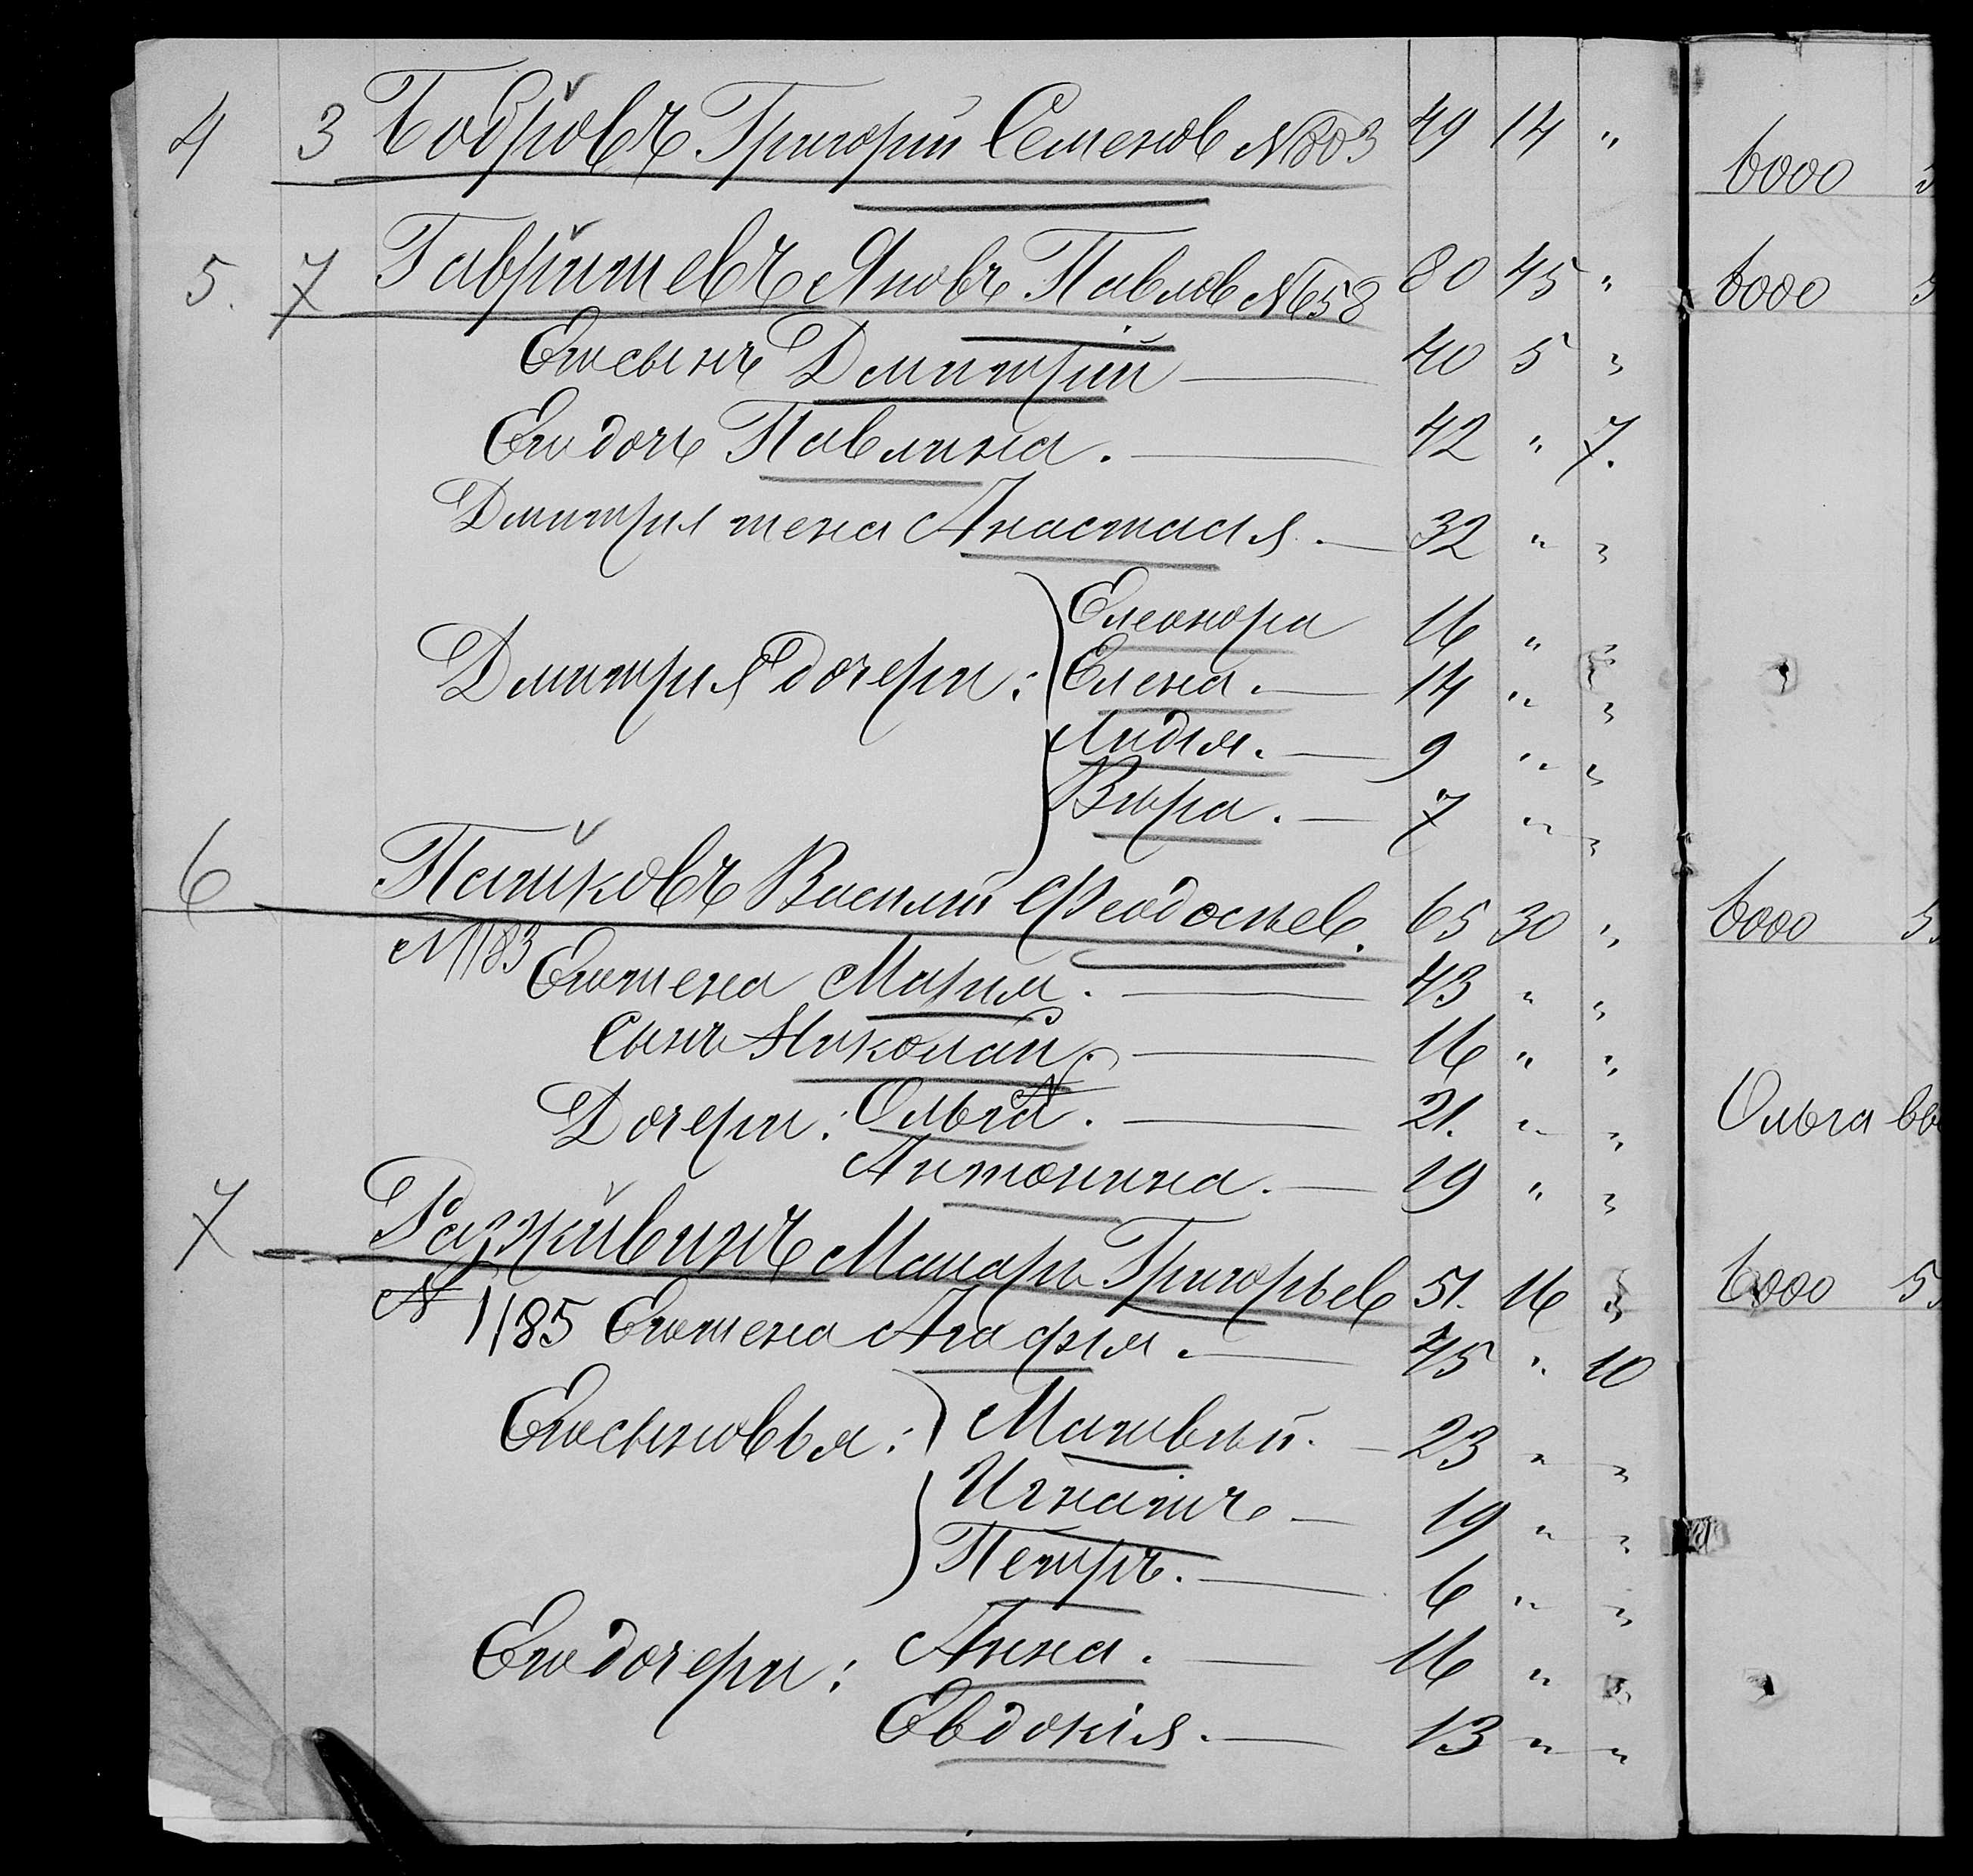 4 3 Бобровъ Григорій Семенов №803 49 14 „ 6000
5. 7 Гавришевъ Яковъ Павлов №658 80 45 „ 6000
Его сынъ Дмитрій — 40 5 „
Его дочь Павлина. — 42 „ 7.
Дмитрія жена Анастасія. — 32 „ „
Елеонора 16 „ „
Дмитрія дочери: Елена. — 14 „ „
Лидія. — 9 „ „
Вѣра. — 7 „ „
6 Пашковъ Василій Феодосьев. 65 30 „ 6000
№1183 Его жена Марія. — 43 „ „
Сынъ Николай. — 16 „ „
Дочери: Ольга. — 21. „ „ Ольга
Антонина. — 19 „ „
7 Разживинъ Макаръ Григорьев 51. 16 „ 6000
№ 1185 Его жена Агафія. — 45 „ 10
Его сыновья: Матвѣй. — 23 „ „
Игнатій — 19 „ „
Петръ. — 6 „ „
Его дочери: Анна. — 16 „ „
Евдокія. — 13 „ „